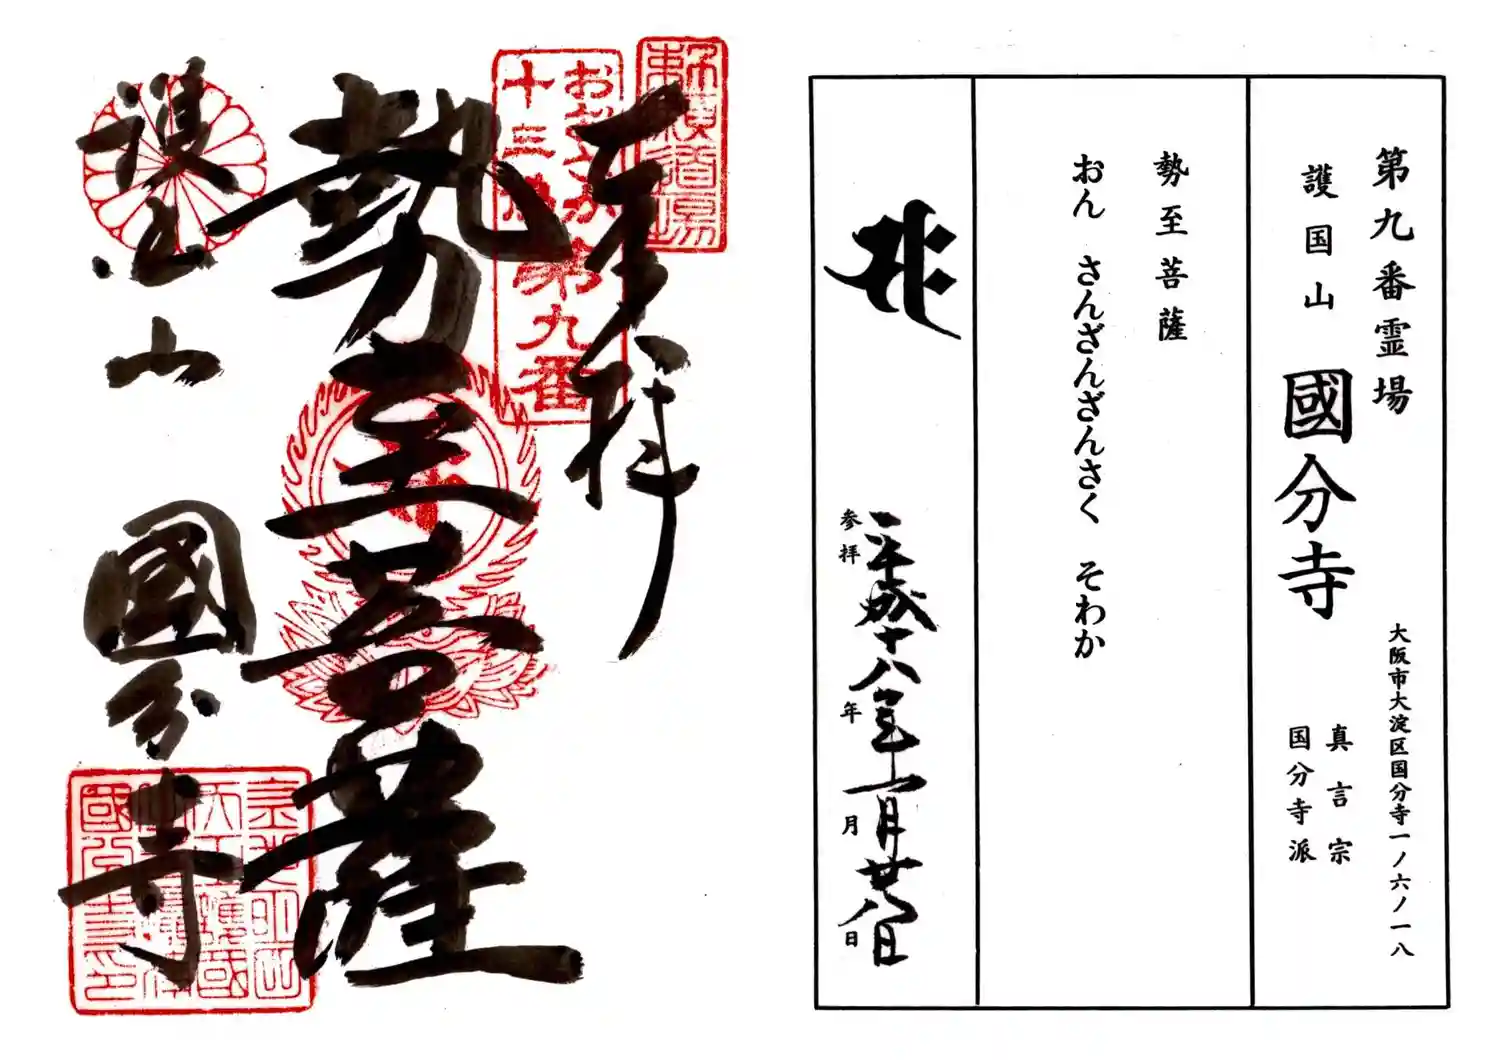 奉拝
勢至菩薩
護国山 國分寺
勅願道場
おおさか
十三佛
第九番
第九番霊場
護国山 國分寺
大阪市大淀区国分寺一ノ六ノ一八
真言宗
国分寺派
勢至菩薩
おん さんざんざんさく そわか
参拝 平成十八年 年 一月 月 廿八日 日